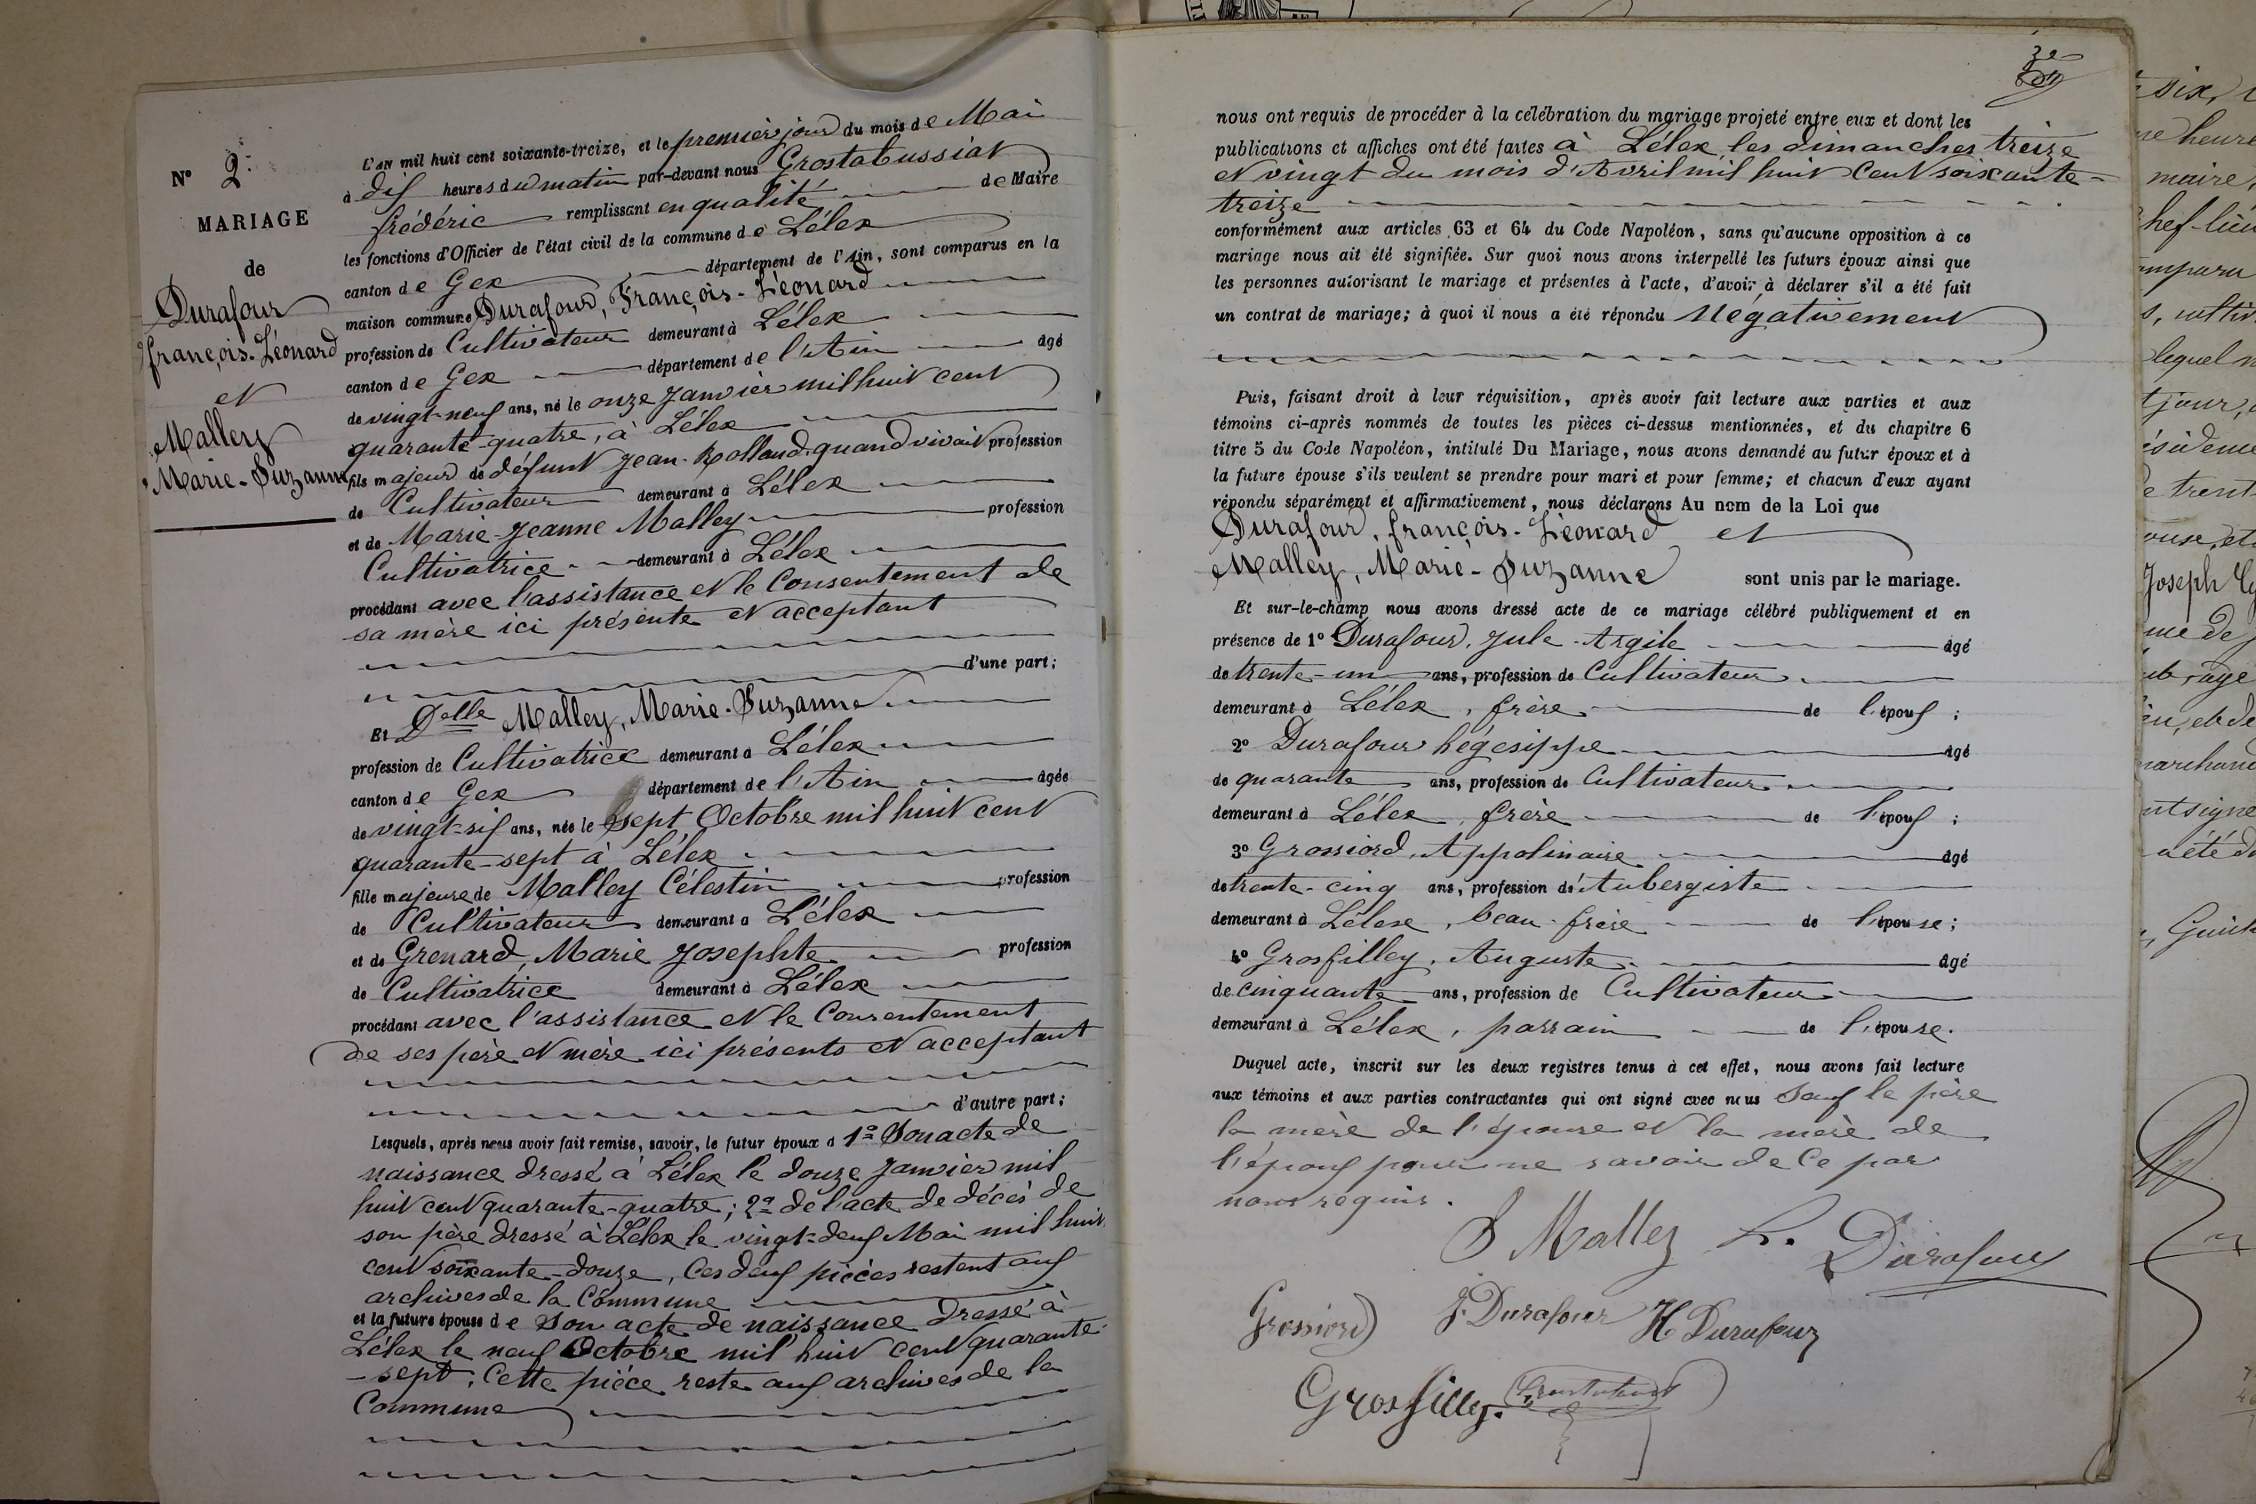 N° 2.
MARIAGE
de
Durafour
françois-Léonard
et
Malley
Marie-Suzanne
L'AN mil huit cent soixante-treize, et le premier jour du mois de Mai
à dix heures du matin par-devant nous Grostabussiat
frédéric remplissant en qualité de Maire
les fonctions d'Officier de l'état civil de la commune de Lélex
canton de Gex département de l'Ain, sont comparus en la
maison commune Durafour, François-Léonard
profession de Cultivateur demeurant à Lélex
canton de Gex département de l'Ain âgé
de vingt-neuf ans, né le onze Janvier mil huit cent
quarante-quatre, à Lélex
fils majeur de défunt Jean-Rolland, quand vivait profession
de Cultivateur demeurant à Lélex
et de Marie-Jeanne Malley profession
Cultivatrice demeurant à Lélex
procédant avec l'assistance et le Consentement de
sa mère ici présente et acceptant
d'une part;
Et Delle Malley, Marie-Suzanne
profession de Cultivatrice demeurant à Lélex
canton de Gex département de l'Ain âgée
de vingt-six ans, née le sept Octobre mil huit cent
quarante-sept à Lélex
fille majeure de Malley Célestin profession
de Cultivateur demeurant à Lélex
et de Grenard, Marie Josephte profession
de Cultivatrice demeurant à Lélex
procédant avec l'assistance et le Consentement
de ses père et mère ici présents et acceptant
d'autre part;
Lesquels, après nous avoir fait remise, savoir, le futur époux d 1° Son acte de
naissance dressé à Lélex le douze Janvier mil
huit cent quarante-quatre; 2° de l'acte de décès de
son père dressé à Lélex le vingt-deux Mai mil huit
cent soixante-douze, Ces deux pièces restent aux
archives de la Commune
et la future épouse de Son acte de naissance dressé à
Lélex le neuf Octobre mil huit cent quarante-
-sept; Cette pièce reste aux archives de la
Commune
nous ont requis de procéder à la célébration du mariage projeté entre eux et dont les
publications et affiches ont été faites à Lélex, les dimanches treize
et vingt du mois d'Avril mil huit Cent soixante-
treize
conformément aux articles 63 et 64 du Code Napoléon, sans qu'aucune opposition à ce
mariage nous ait été signifiée. Sur quoi nous avons interpellé les futurs époux ainsi que
les personnes autorisant le mariage et présentes à l'acte, d'avoir à déclarer s'il a été fait
un contrat de mariage; à quoi il nous a été répondu Négativement
Puis, faisant droit à leur réquisition, après avoir fait lecture aux parties et aux
témoins ci-après nommés de toutes les pièces ci-dessus mentionnées, et du chapitre 6
titre 5 du Code Napoléon, intitulé Du Mariage, nous avons demandé au futur époux et à
la future épouse s'ils veulent se prendre pour mari et pour femme; et chacun d'eux ayant
répondu séparément et affirmativement, nous déclarons Au nom de la Loi que
Durafour, françois-Léonard et
Malley, Marie-Suzanne sont unis par le mariage.
Et sur-le-champ nous avons dressé acte de ce mariage célébré publiquement et en
présence de 1° Durafour, Jule-Argile âgé
de trente-un ans, profession de Cultivateur
demeurant à Lélex, frère de l'époux;
2° Durafour hégesippe âgé
de quarante ans, profession de Cultivateur
demeurant à Lélex, frère de l'époux;
3° Grossiord, Appolinaire âgé
de trente-cinq ans, profession d'Aubergiste
demeurant à Lélex, beau-frère de l'épouse;
4° Grosfilley, Auguste âgé
de cinquante ans, profession de Cultivateur
demeurant à Lélex, parrain de l'épouse.
Duquel acte, inscrit sur les deux registres tenus à cet effet, nous avons fait lecture
aux témoins et aux parties contractantes qui ont signé avec nous Sauf le père
la mère de l'épouse et la mère de
l'époux pour ne savoir de Ce par
nous requis.
S Malley L. Durafour
Grossiord J. Durafour H Durafour
Grosfilley.